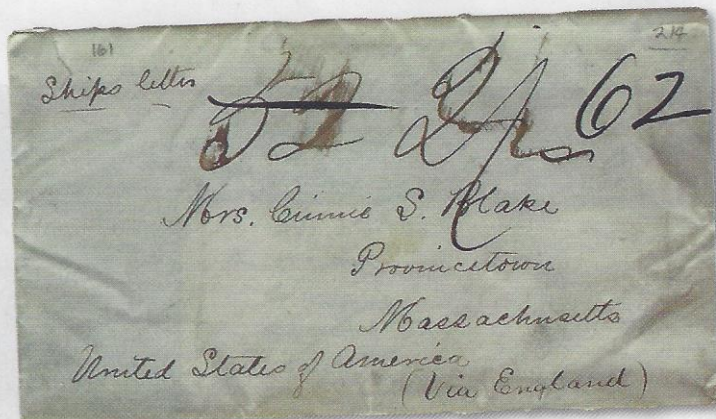 161
214
Ships letter
52 2/- 62
Mrs. S. Blake
Provincetown
Massachusetts
United States of America
(Via England)